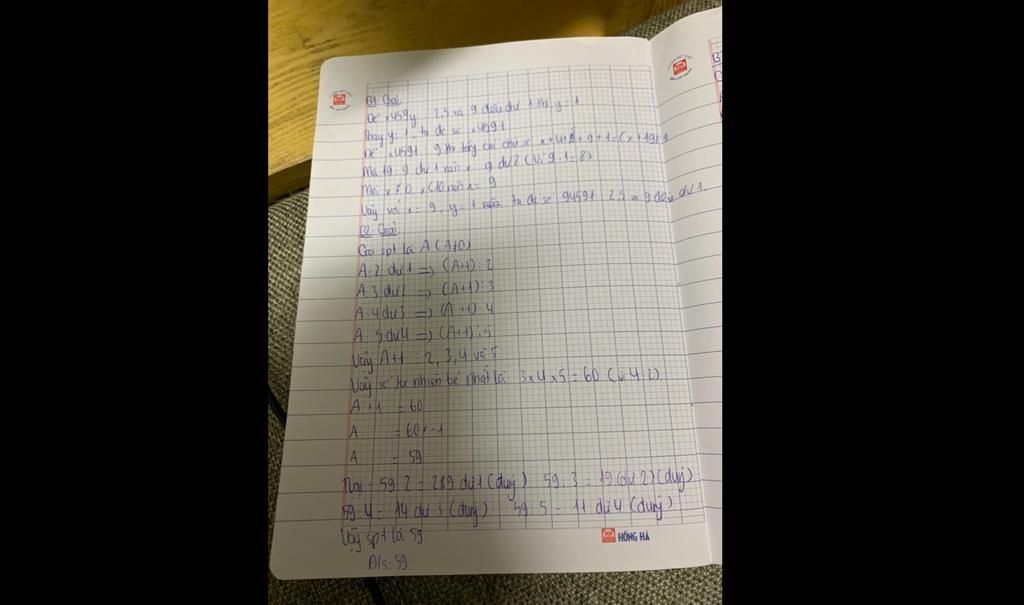 B1 Giải
Để x459y : 2,5 và 9 đều dư 1 thì y = 1
Thay y = 1, ta đc số x4591
Để x4591 : 9 thì tổng các chữ số x + 4 + 5 + 9 + 1 = (x + 19) : 9
Mà 19 : 9 dư 1 nên x : 9 dư 2 (Vì 9 - 1 = 8)
Mà x ≠ 0, x < 10 nên x = 9
Vậy với x = 9, y = 1 ta đc số 94591 : 2,5 và 9 đều dư 1.
B2 Giải
Gọi spt là A (A≠0)
A : 2 dư 1 => (A+1) : 2
A : 3 dư 2 => (A+1) : 3
A : 4 dư 3 => (A+1) : 4
A : 5 dư 4 => (A+1) : 5
Vậy A+1 : 2, 3, 4 và 5
Vậy số tự nhiên bé nhất là 3 x 4 x 5 = 60 (vì 4 : 2)
A + 1 = 60
A = 60 - 1
A = 59
59 : 2 = 289 dư 1 (đúng) 59 : 3 = 19 (dư 2) (đúng)
59 : 4 = 14 dư 3 (đúng) 59 : 5 = 11 dư 4 (đúng)
Vậy spt là 59.
Đ/s: 59.
HỒNG HÀ